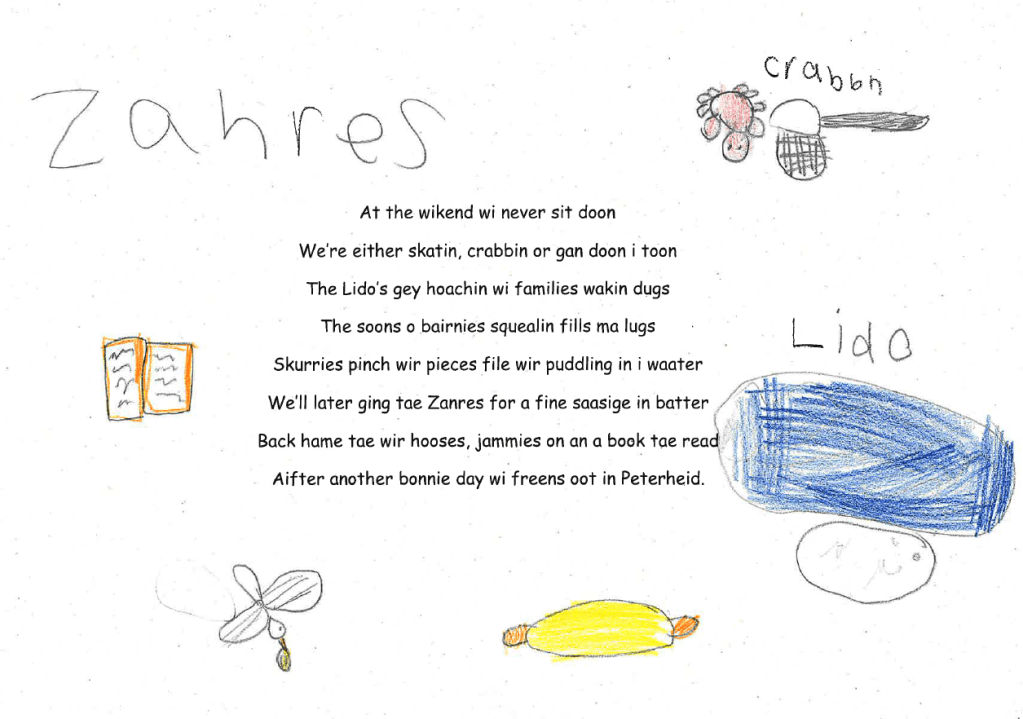 Zanres
crabbn
At the wikend wi never sit doon
We're either skatin, crabbin or gan doon i toon
The Lido's gey hoachin wi families wakin dugs
The soons o bairnies squealin fills ma lugs
Skurries pinch wir pieces file wir puddling in i waater
We'll later ging tae Zanres for a fine saasige in batter
Back hame tae wir hooses, jammies on an a book tae read
Aifter another bonnie day wi freens oot in Peterheid.
Lido